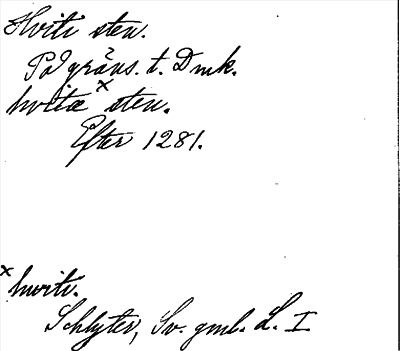 Hviti sten.
På gräns. t. Dmk.
hvitæ x sten.
Efter 1281.
x hwiti.
Schlyter, Sv. gml. L. I